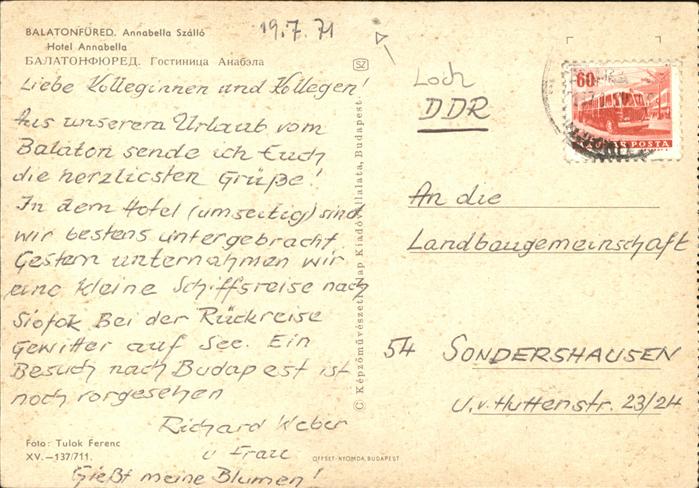 BALATONFÜRED. Annabella Szálló
Hotel Annabella
БАЛАТОНФЮРЕД. Гостиница Анабэла
19.7.71
Liebe Kolleginnen und Kollegen!
Aus unserem Urlaub vom
Balaton sende ich Euch
die herzlichsten Grüße!
In dem Hotel (umseitig) sind
wir bestens untergebracht
Gestern unternahmen wir
eine kleine Schiffsreise nach
Siofok Bei der Rückreise
Gewitter auf See. Ein
Besuch nach Budapest ist
noch vorgesehen
Richard Weber
u Frau
Gießt meine Blumen!
Foto: Tulok Ferenc
XV.—137/711.
OFFSET-NYOMDA, BUDAPEST
SZ
© Képzőművészeti Alap Kiadóvállalata, Budapest.
Loch
DDR
60f
MAGYAR POSTA
An die
Landbaugemeinschaft
54 SONDERSHAUSEN
U.v.Huttenstr. 23/24